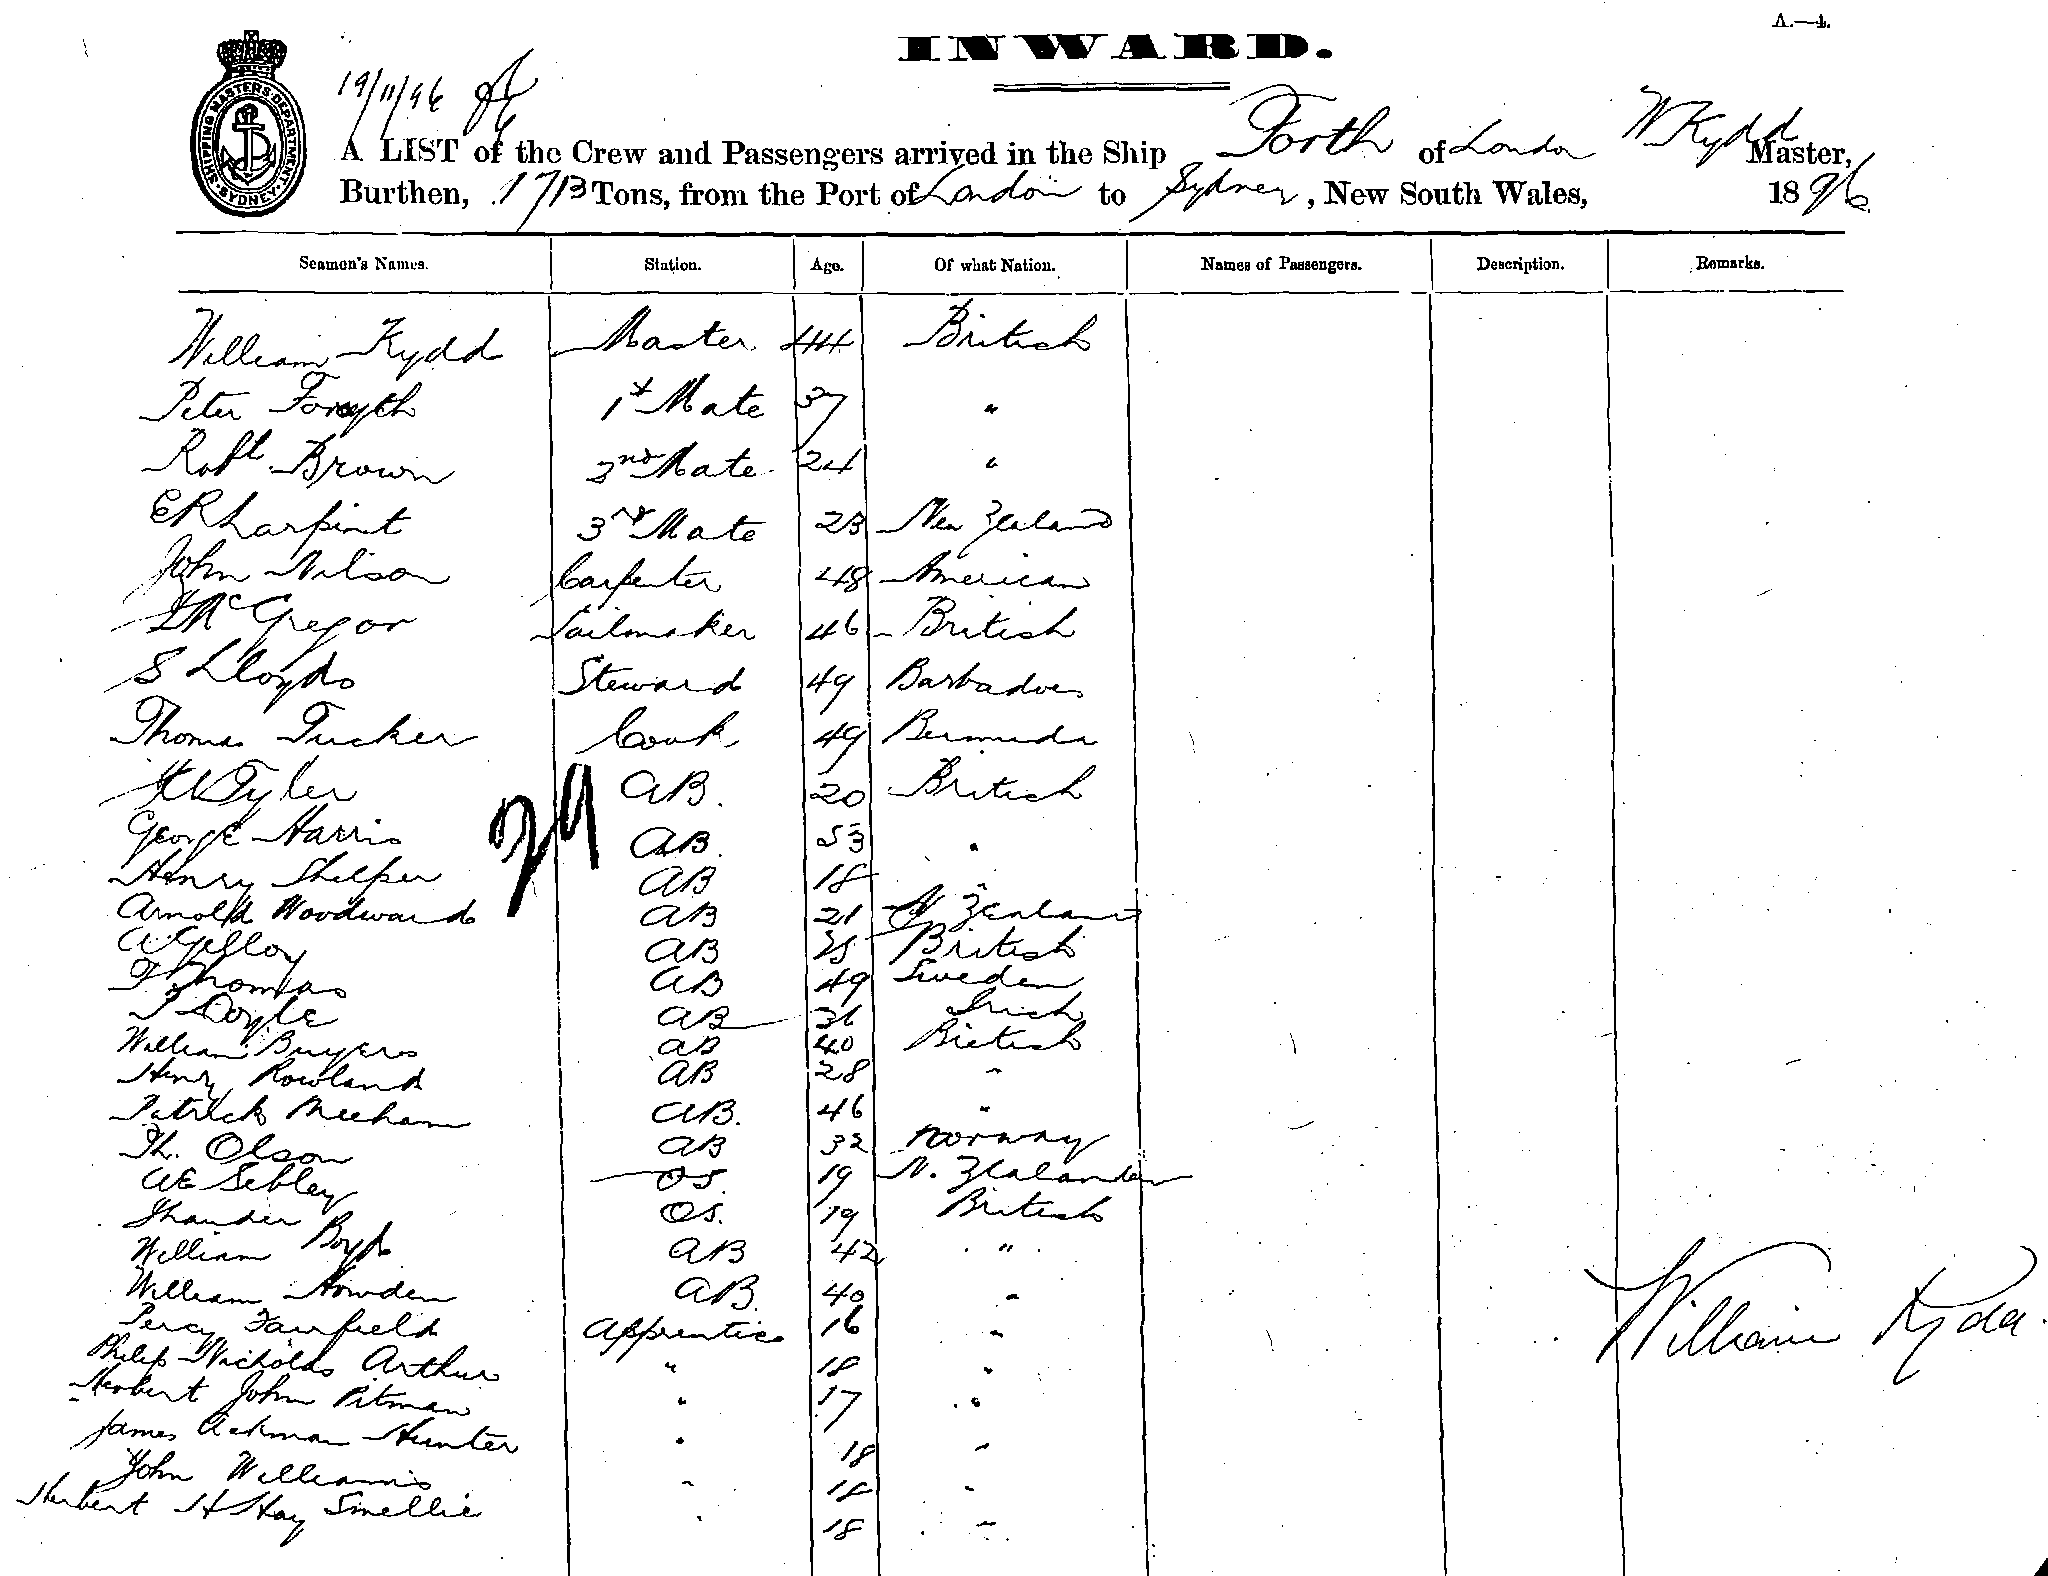 A.—4.
INWARD.
SHIPPING MASTERS DEPARTMENT SYDNEY
19/11/96
A LIST of the Crew and Passengers arrived in the Ship Forth of London W Kydd Master,
Burthen, 1713 Tons, from the Port of London to Sydney, New South Wales, 1896
Seamen's Names. Station. Age. Of what Nation. Names of Passengers. Description. Remarks.
William Kydd Master 44 British
Peter Forsyth 1st Mate 37 "
Robt Brown 2nd Mate 24 "
E R Larpint 3rd Mate 23 New Zealand
John Nilson Carpenter 48 American
McGregor Sailmaker 46 British
S Lloyds Steward 49 Barbadoes
Thomas Tucker Cook 49 Bermuda
Tyler AB. 20 British
29
George Harris AB. 53 "
Henry Shelper AB 18 "
Arnold Woodward AB 21 N Zealand
A Gelloy AB British
Thomas AB 49 Sweden
Doyle AB 36 Irish
William Buyers AB 40 British
Henry Rowland AB 28 "
Patrick Meeham AB. 46 "
Th. Olson AB 32 Norway
WE Sebley OS. 19 N. Zealander
OS. 19 British
William Boyd AB 42 "
William Howden AB. 40 "
Percy Fairfield Apprentice 16 "
Philip Nicholas Arthur " 18 "
Herbert John Pitman " 17 "
James Ackman Hunter " 18 "
John Williams " 18 "
Herbert H Hay Smellie " 18 "
William Kydd.